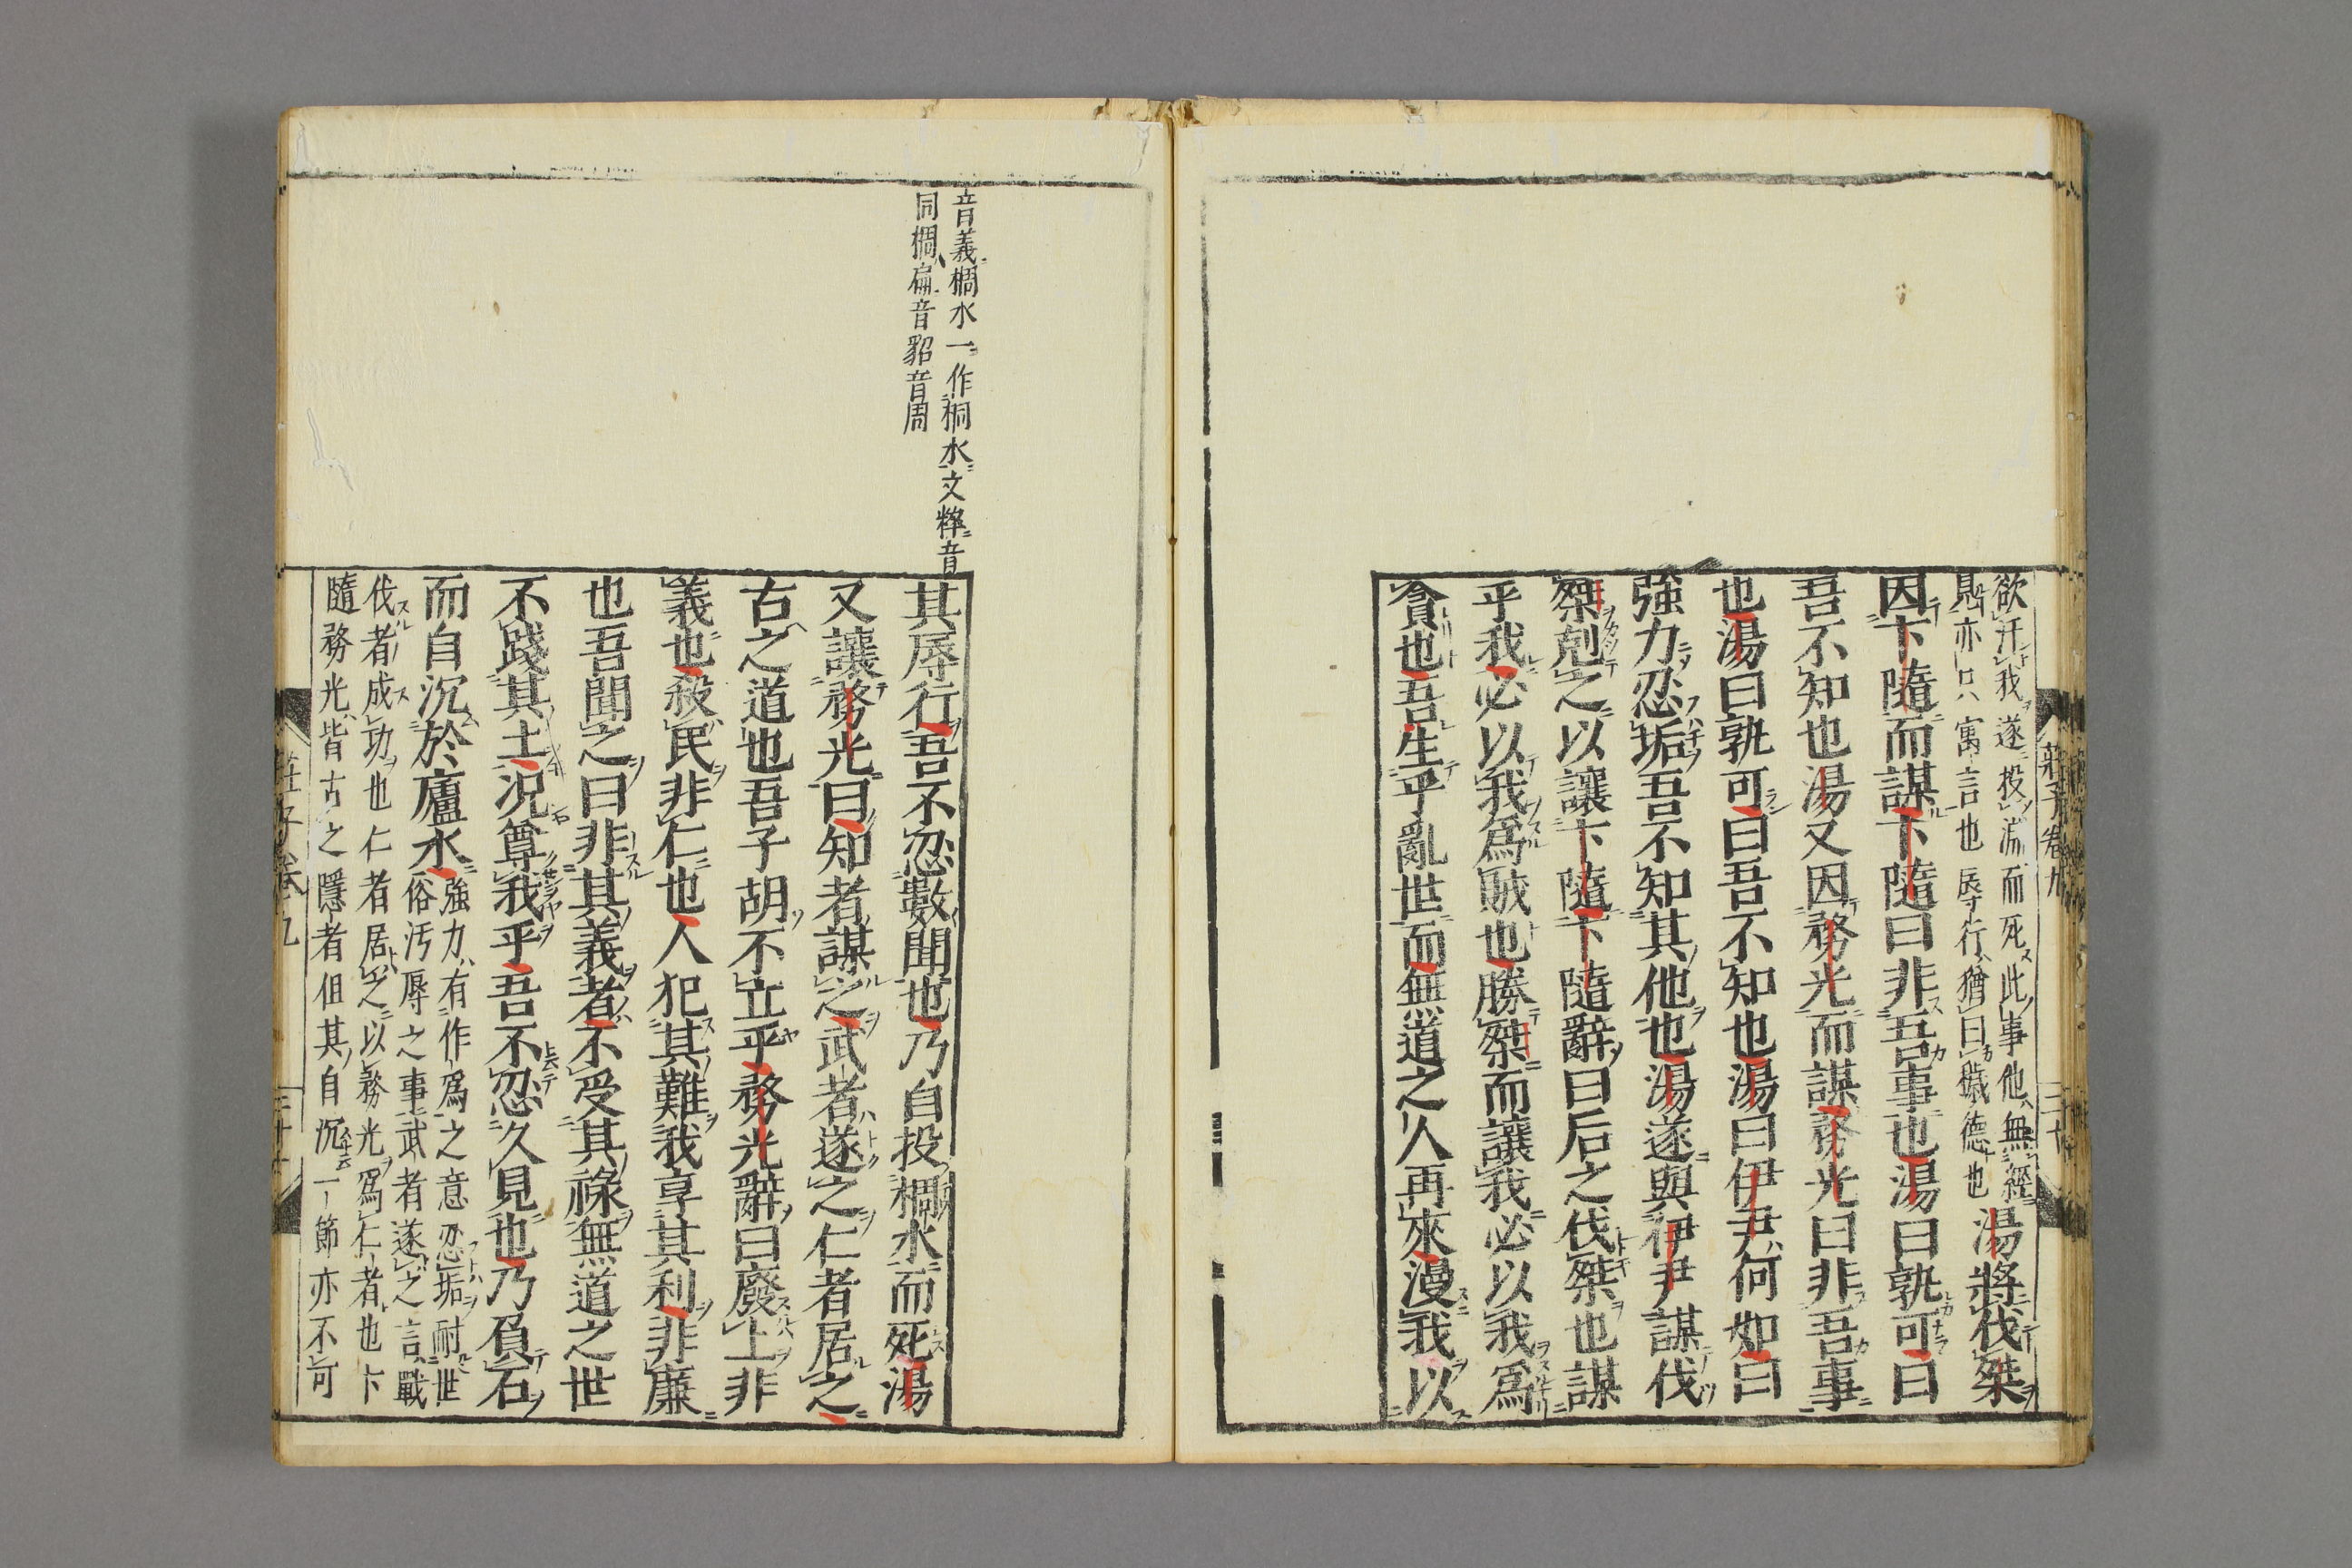 欲汙我遂投淵而死此事他無經
見亦只寓言也辱行猶曰穢德也
湯將伐桀
因卞隨而謀卞隨曰非吾事也湯曰孰可曰
吾不知也湯又因務光而謀務光曰非吾事
也湯曰孰可曰吾不知也湯曰伊尹何如曰
強力忍垢吾不知其他也湯遂與伊尹謀伐
桀剋之以讓卞隨卞隨辭曰后之伐桀也謀
乎我必以我爲賊也勝桀而讓我必以我爲
貪也吾生乎亂世而無道之人再來漫我以
莊子卷九
音義椆水一作桐水文粹音
同椆扁音貂音周
其辱行吾不忍數聞也乃自投椆水而死湯
又讓務光曰知者謀之武者遂之仁者居之
古之道也吾子胡不立乎務光辭曰廢上非
義也殺民非仁也人犯其難我享其利非廉
也吾聞之曰非其義者不受其祿無道之世
不踐其土況尊我乎吾不忍久見也乃負石
而自沉於廬水
強力有作爲之意忍垢耐世
俗汚辱之事武者遂之言戰
伐者成功也仁者居之以務光爲仁者也卞
隨務光皆古之隱者但其自沉一節亦不可
莊子卷九